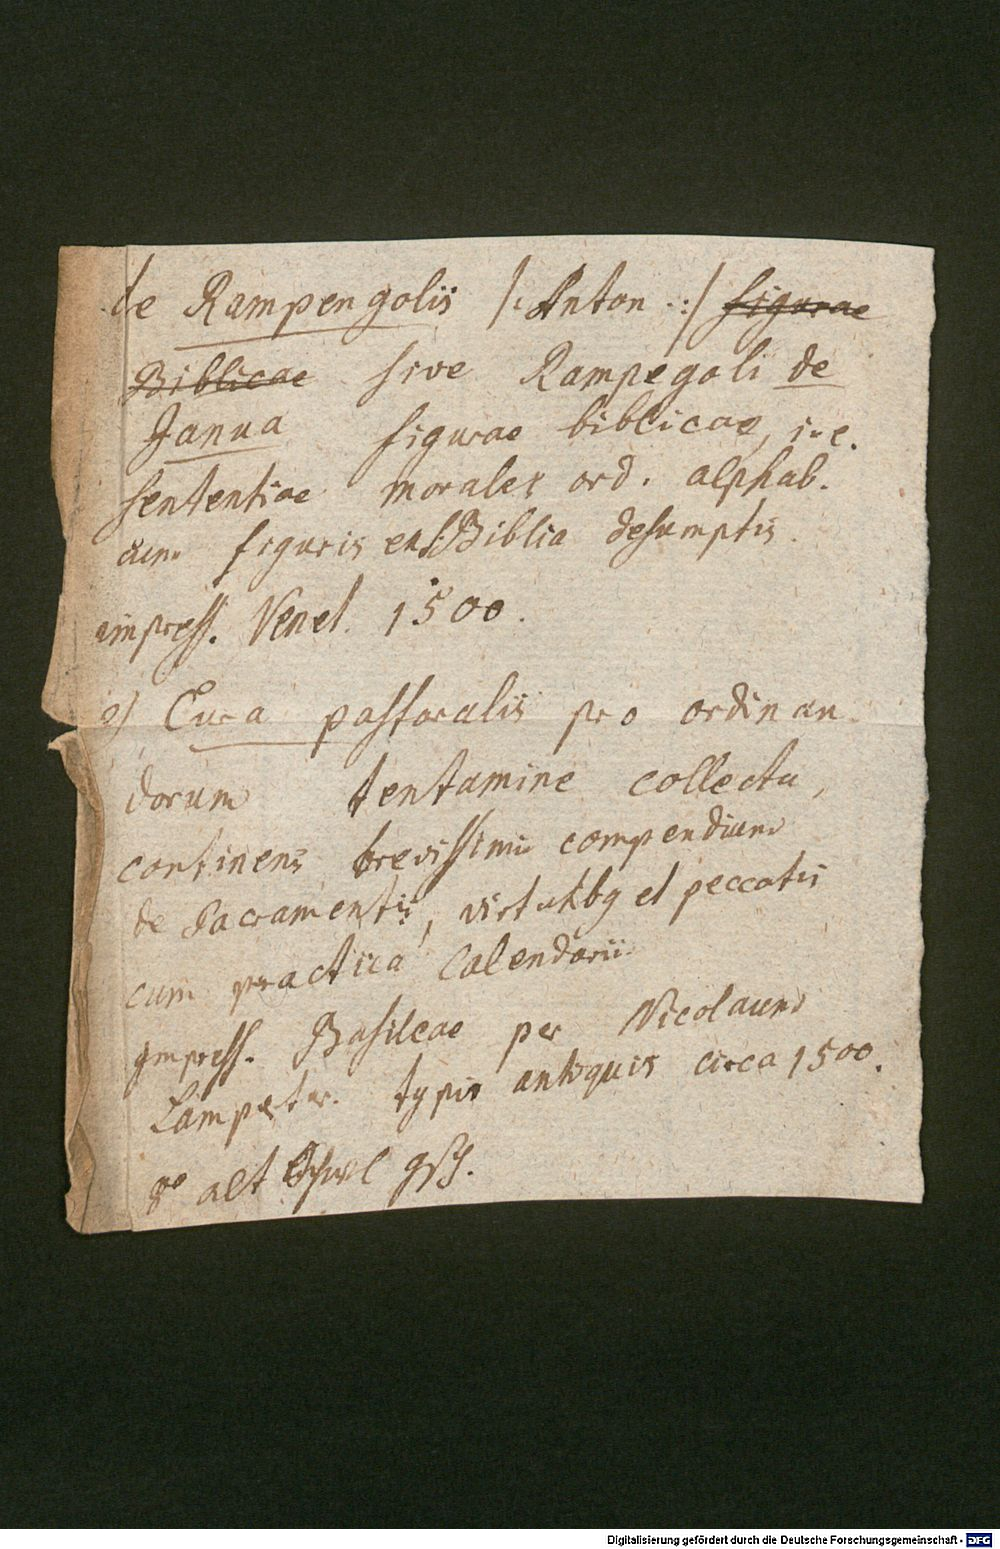 de Rampengoliis /: Anton :/ figurae
Biblicae sive Rampegoli de
Janua figurae biblicae, i.e.
sententiae morales ord. alphab.
cum figuris Biblia desumptis.
impress. Venet. 1500.
2) Cura pastoralis pro ordinan
dorum tentamine collecta,
continens brevissimu compendium
de Sacramentis, virtutibq et peccatis
cum practica Calendarii
Impress. Basileae per Nicolaum
Lampeter. typis antiquis circa 1500.
alt
Digitalisierung gefördert durch die Deutsche Forschungsgemeinschaft - DFG